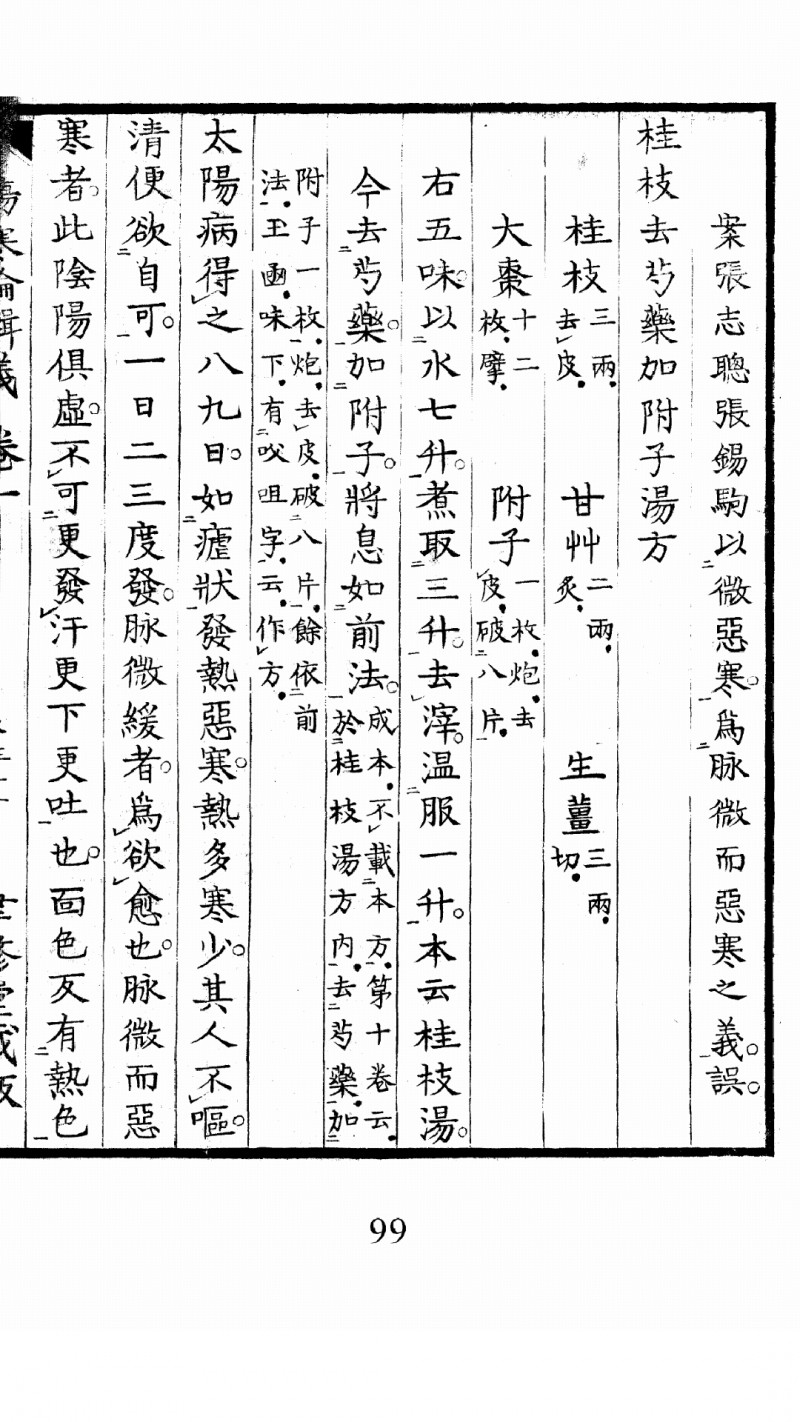 案張志聰張錫駒以微惡寒。爲脉微而惡寒之義。誤。
桂枝去芍藥加附子湯方
桂枝三兩去皮　甘艸二兩炙　生薑三兩切
大棗十二枚擘　附子一枚炮去皮破八片
右五味。以水七升。煮取三升。去滓。温服一升。本云桂枝湯。
今去芍藥。加附子。將息如前法。成本不載本方第十卷云於桂枝湯方內去芍藥加
附子一枚炮去皮破八片餘依前法王凾味下有㕮咀字云作方
太陽病得之八九日。如瘧狀發熱惡寒。熱多寒少。其人不嘔。
清便欲自可。一日二三度發。脉微緩者。爲欲愈也。脉微而惡
寒者。此陰陽俱虛。不可更發汗更下更吐也。面色反有熱色
傷寒論輯義 卷一
99